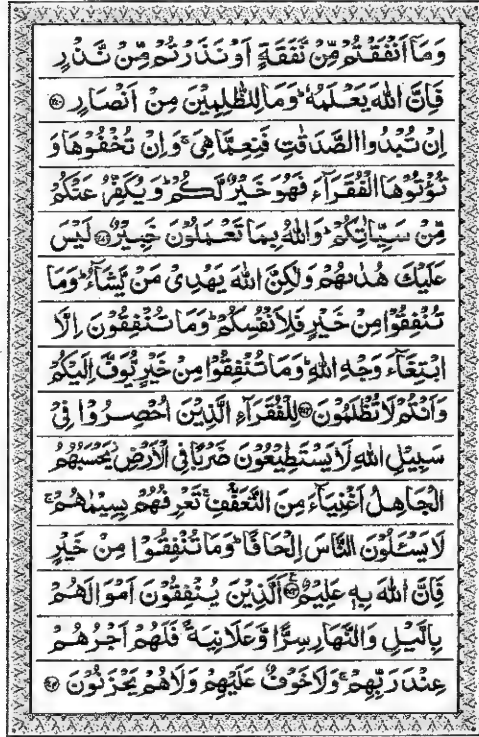 وَمَآ اَنْفَقْتُمْ مِّنْ نَّفَقَةٍ اَوْ نَذَرْتُمْ مِّنْ نَّذْرٍ
فَاِنَّ اللّٰهَ يَعْلَمُهٗ ؕ وَمَا لِلظّٰلِمِيْنَ مِنْ اَنْصَارٍ ﴿۲۷۰﴾
اِنْ تُبْدُوا الصَّدَقٰتِ فَنِعِمَّا هِىَ ۚ وَاِنْ تُخْفُوْهَا وَ
تُؤْتُوْهَا الْفُقَرَآءَ فَهُوَ خَيْرٌ لَّكُمْ ؕ وَيُكَفِّرُ عَنْكُمْ
مِّنْ سَيِّاٰتِكُمْ ؕ وَاللّٰهُ بِمَا تَعْمَلُوْنَ خَبِيْرٌ ﴿۲۷۱﴾ لَيْسَ
عَلَيْكَ هُدٰىهُمْ وَلٰكِنَّ اللّٰهَ يَهْدِىْ مَنْ يَّشَآءُ ؕ وَمَا
تُنْفِقُوْا مِنْ خَيْرٍ فَلِاَنْفُسِكُمْ ؕ وَمَا تُنْفِقُوْنَ اِلَّا
ابْتِغَآءَ وَجْهِ اللّٰهِ ؕ وَمَا تُنْفِقُوْا مِنْ خَيْرٍ يُّوَفَّ اِلَيْكُمْ
وَاَنْتُمْ لَا تُظْلَمُوْنَ ﴿۲۷۲﴾ لِلْفُقَرَآءِ الَّذِيْنَ اُحْصِرُوْا فِىْ
سَبِيْلِ اللّٰهِ لَا يَسْتَطِيْعُوْنَ ضَرْبًا فِى الْاَرْضِ يَحْسَبُهُمُ
الْجَاهِلُ اَغْنِيَآءَ مِنَ التَّعَفُّفِ ۚ تَعْرِفُهُمْ بِسِيْمٰهُمْ ۚ
لَا يَسْـَٔلُوْنَ النَّاسَ اِلْحَافًا ؕ وَمَا تُنْفِقُوْا مِنْ خَيْرٍ
فَاِنَّ اللّٰهَ بِهٖ عَلِيْمٌ ﴿۲۷۳﴾ اَلَّذِيْنَ يُنْفِقُوْنَ اَمْوَالَهُمْ
بِالَّيْلِ وَالنَّهَارِ سِرًّا وَّعَلَانِيَةً فَلَهُمْ اَجْرُهُمْ
عِنْدَ رَبِّهِمْ ۚ وَلَا خَوْفٌ عَلَيْهِمْ وَلَا هُمْ يَحْزَنُوْنَ ﴿۲۷۴﴾